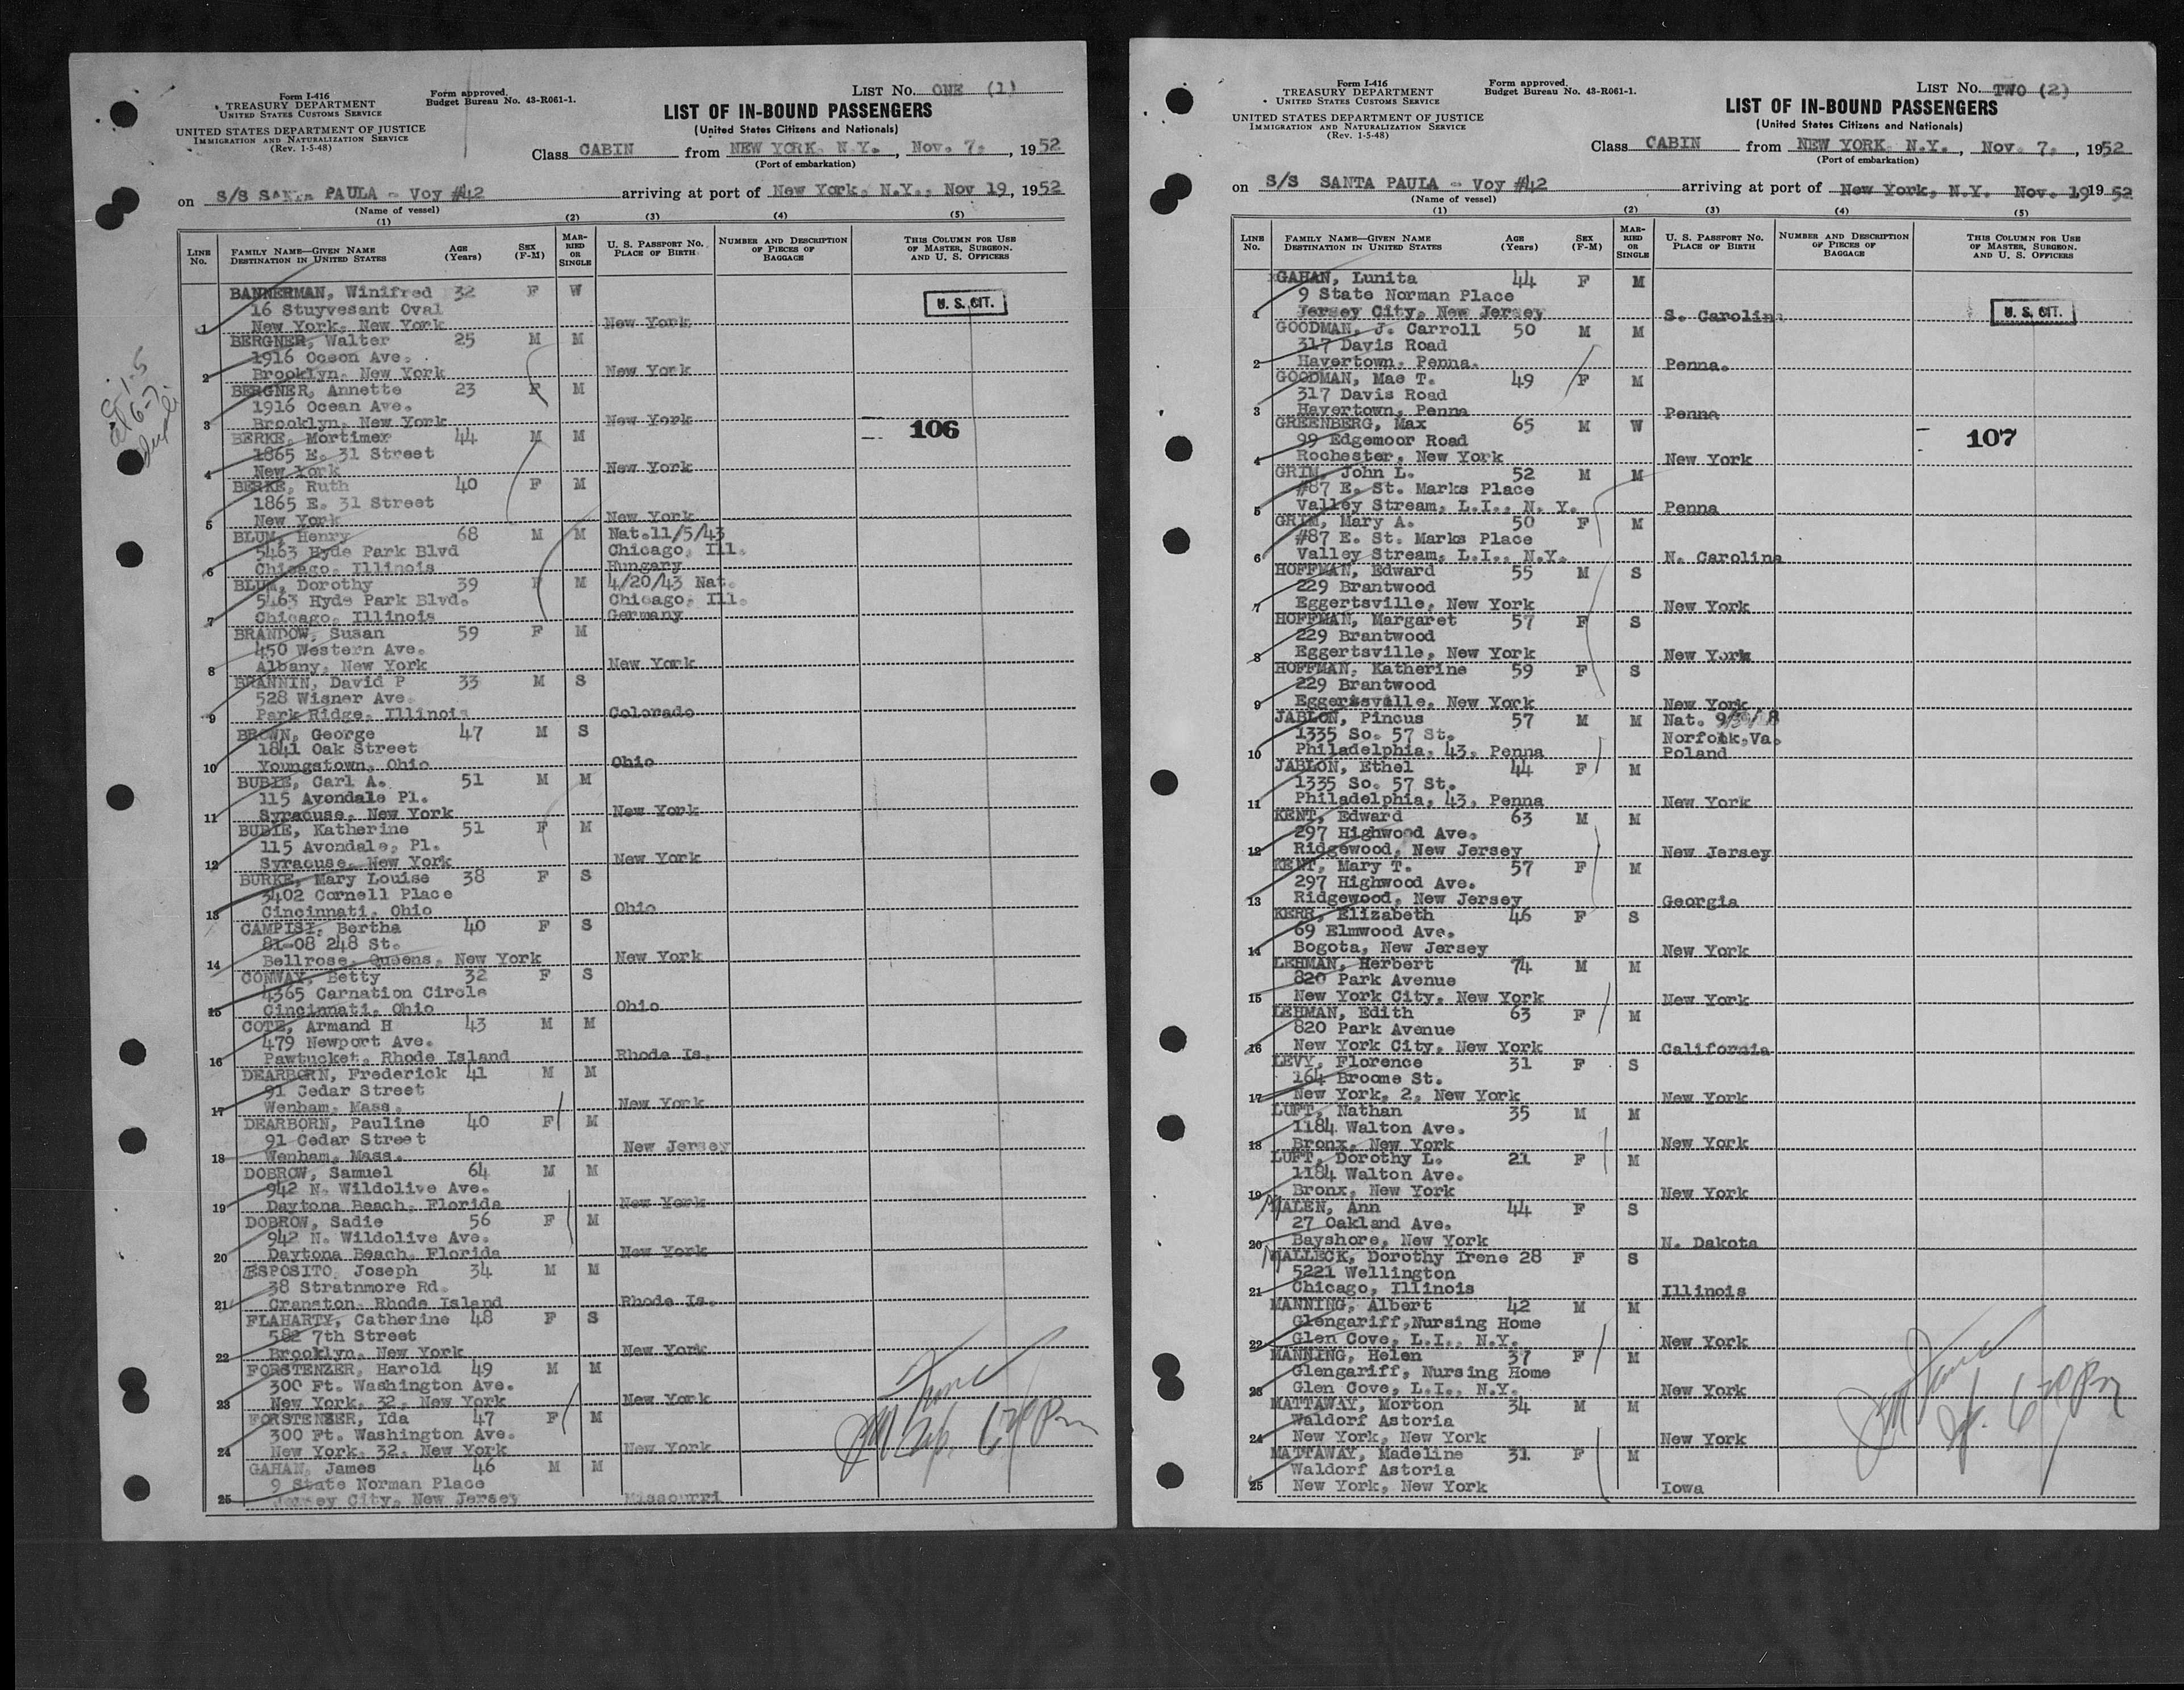 Form I-416
TREASURY DEPARTMENT
UNITED STATES CUSTOMS SERVICE
UNITED STATES DEPARTMENT OF JUSTICE
IMMIGRATION AND NATURALIZATION SERVICE
(Rev. 1-5-48)
Form approved.
Budget Bureau No. 43-R061-1.
LIST No. ONE (1)
LIST OF IN-BOUND PASSENGERS
(United States Citizens and Nationals)
Class CABIN from NEW YORK, N.Y., Nov. 7, 1952
(Port of embarkation)
on S/S SANTA PAULA - Voy #42 arriving at port of New York, N.Y., Nov 19, 1952
(Name of vessel)
(1) (2) (3) (4) (5)
LINE No. FAMILY NAME—GIVEN NAME DESTINATION IN UNITED STATES AGE (Years) SEX (F-M) MARRIED OR SINGLE U. S. PASSPORT No. PLACE OF BIRTH NUMBER AND DESCRIPTION OF PIECES OF BAGGAGE THIS COLUMN FOR USE OF MASTER, SURGEON, AND U. S. OFFICERS
BANNERMAN, Winifred 32 F W
16 Stuyvesant Oval U. S. CIT.
1 New York, New York New York
BERGNER, Walter 25 M M
1916 Oceon Ave.
2 Brooklyn, New York New York
BERGNER, Annette 23 F M
1916 Ocean Ave.
3 Brooklyn, New York New York
BERKE, Mortimer 44 M M 106
1865 E. 31 Street
4 New York New York
BERKE, Ruth 40 F M
1865 E. 31 Street
5 New York New York
BLUM, Henry 68 M M Nat.11/5/43
5463 Hyde Park Blvd Chicago, Ill.
6 Chicago, Illinois Hungary
BLUM, Dorothy 39 F M 4/20/43 Nat.
5463 Hyde Park Blvd. Chicago, Ill.
7 Chicago, Illinois Germany
BRANDOW, Susan 59 F M
450 Western Ave.
8 Albany, New York New York
BRANNIN, David P 33 M S
528 Wisner Ave.
9 Park Ridge, Illinois Colorado
BROWN, George 47 M S
1841 Oak Street
10 Youngstown, Ohio Ohio
BUBIE, Carl A. 51 M M
115 Avondale Pl.
11 Syracuse, New York New York
BUBIE, Katherine 51 F M
115 Avondale, Pl.
12 Syracuse, New York New York
BURKE, Mary Louise 38 F S
3402 Cornell Place
13 Cincinnati, Ohio Ohio
CAMPISI, Bertha 40 F S
81-08 248 St.
14 Bellrose, Queens, New York New York
CONWAY, Betty 32 F S
4365 Carnation Circle
15 Cincinnati, Ohio Ohio
COTE, Armand H 43 M M
479 Newport Ave.
16 Pawtucket, Rhode Island Rhode Is.
DEARBORN, Frederick 41 M M
91 Cedar Street
17 Wenham, Mass. New York
DEARBORN, Pauline 40 F M
91 Cedar Street
18 Wenham, Mass. New Jersey
DOBROW, Samuel 64 M M
942 N. Wildolive Ave.
19 Daytona Beach, Florida New York
DOBROW, Sadie 56 F M
942 N. Wildolive Ave.
20 Daytona Beach, Florida New York
ESPOSITO, Joseph 34 M M
38 Stratnmore Rd.
21 Cranston, Rhode Island Rhode Is.
FLAHARTY, Catherine 48 F S
582 7th Street
22 Brooklyn, New York New York
FORSTENZER, Harold 49 M M
300 Ft. Washington Ave.
23 New York, 32, New York New York
FORSTENZER, Ida 47 F M
300 Ft. Washington Ave.
24 New York, 32, New York New York
GAHAN, James 46 M M
9 State Norman Place
25 Jersey City, New Jersey Missourri
Form I-416
TREASURY DEPARTMENT
UNITED STATES CUSTOMS SERVICE
UNITED STATES DEPARTMENT OF JUSTICE
IMMIGRATION AND NATURALIZATION SERVICE
(Rev. 1-5-48)
Form approved.
Budget Bureau No. 43-R061-1.
LIST No. TWO (2)
LIST OF IN-BOUND PASSENGERS
(United States Citizens and Nationals)
Class CABIN from NEW YORK, N.Y., Nov. 7, 1952
(Port of embarkation)
on S/S SANTA PAULA - Voy #42 arriving at port of New York, N.Y. Nov. 19 1952
(Name of vessel)
(1) (2) (3) (4) (5)
LINE No. FAMILY NAME—GIVEN NAME DESTINATION IN UNITED STATES AGE (Years) SEX (F-M) MARRIED OR SINGLE U. S. PASSPORT No. PLACE OF BIRTH NUMBER AND DESCRIPTION OF PIECES OF BAGGAGE THIS COLUMN FOR USE OF MASTER, SURGEON, AND U. S. OFFICERS
GAHAN, Lunita 44 F M
9 State Norman Place
1 Jersey City, New Jersey S. Carolina U. S. CIT.
GOODMAN, J. Carroll 50 M M
317 Davis Road
2 Havertown, Penna. Penna.
GOODMAN, Mae T. 49 F M
317 Davis Road
3 Havertown, Penna Penna
GREENBERG, Max 65 M W
99 Edgemoor Road 107
4 Rochester, New York New York
GRIM, John L. 52 M M
#87 E. St. Marks Place
5 Valley Stream, L.I., N. Y. Penna
GRIM, Mary A. 50 F M
#87 E. St. Marks Place
6 Valley Stream, L.I., N.Y. N. Carolina
HOFFMAN, Edward 55 M S
229 Brantwood
7 Eggertsville, New York New York
HOFFMAN, Margaret 57 F S
229 Brantwood
8 Eggertsville, New York New York
HOFFMAN, Katherine 59 F S
229 Brantwood
9 Eggertsville, New York New York
JABLON, Pincus 57 M M Nat.
1335 So. 57 St. Norfolk,Va.
10 Philadelphia, 43, Penna Poland
JABLON, Ethel 44 F M
1335 So. 57 St.
11 Philadelphia, 43, Penna New York
KENT, Edward 63 M M
297 Highwood Ave.
12 Ridgewood, New Jersey New Jersey
KENT, Mary T. 57 F M
297 Highwood Ave.
13 Ridgewood, New Jersey Georgia
KERR, Elizabeth 46 F S
69 Elmwood Ave.
14 Bogota, New Jersey New York
LEHMAN, Herbert 74 M M
820 Park Avenue
15 New York City, New York New York
LEHMAN, Edith 63 F M
820 Park Avenue
16 New York City, New York California
LEVY, Florence 31 F S
164 Broome St.
17 New York, 2, New York New York
LUFT, Nathan 35 M M
1184 Walton Ave.
18 Bronx, New York New York
LUFT, Dorothy L. 21 F M
1184 Walton Ave.
19 Bronx, New York New York
MALEN, Ann 44 F S
27 Oakland Ave.
20 Bayshore, New York N. Dakota
MALLECK, Dorothy Irene 28 F S
5221 Wellington
21 Chicago, Illinois Illinois
MANNING, Albert 42 M M
Glengariff,Nursing Home
22 Glen Cove, L.I., N.Y. New York
MANNING, Helen 37 F M
Glengariff, Nursing Home
23 Glen Cove, L.I., N.Y. New York
MATTAWAY, Morton 34 M M
Waldorf Astoria
24 New York, New York New York
MATTAWAY, Madeline 31 F M
Waldorf Astoria
25 New York, New York Iowa